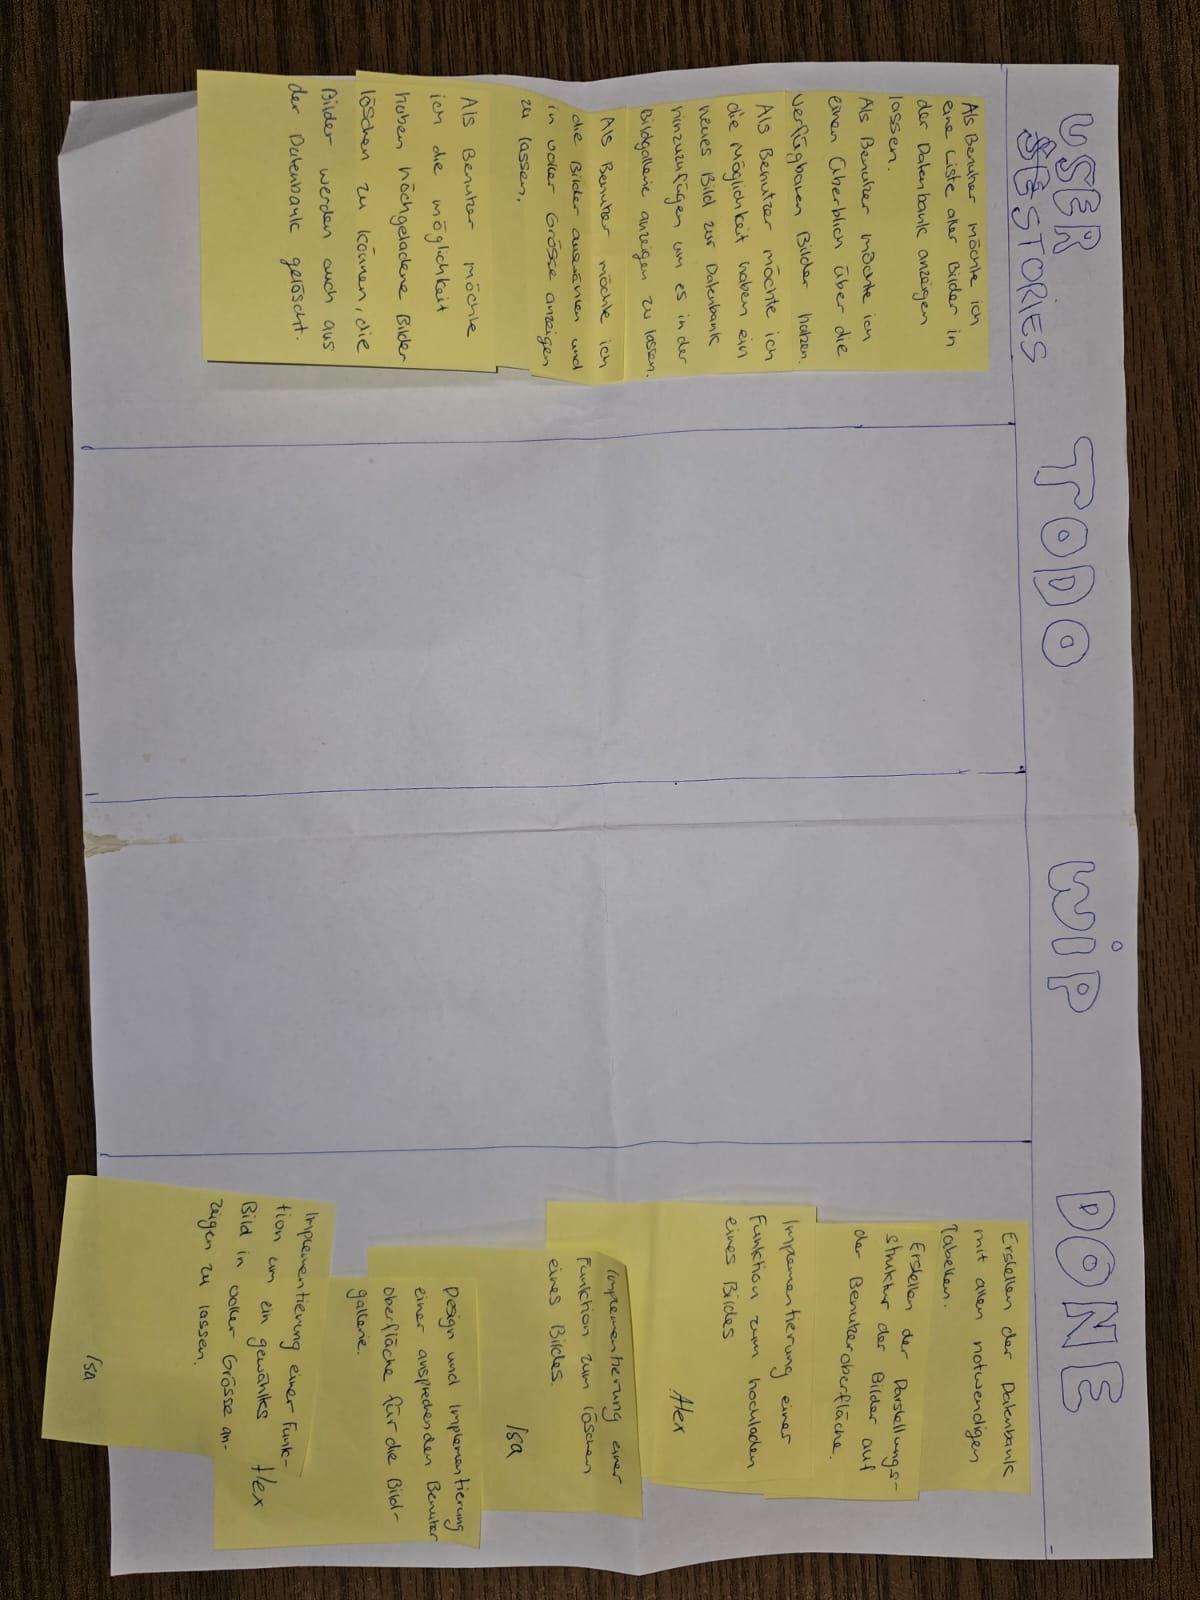 USER
STORIES
TODO
WIP
DONE
Als Benutzer möchte ich
eine Liste aller Bilder in
der Datenbank anzeigen
lassen.
Als Benutzer möchte ich
einen Überblich über die
verfügbaren Bilder haben.
Als Benutzer möchte ich
die Möglichkeit haben ein
neues Bild zur Datenbank
hinzuzufügen um es in der
Bildgallerie anzeigen zu lassen.
Als Benutzer möchte ich
die Bilder auswählen und
in voller Grösse anzeigen
zu lassen.
Als Benutzer möchte
ich die möglichkeit
haben hochgeladene Bilder
löschen zu können, die
Bilder werden auch aus
der Datenbank gelöscht.
Erstellen der Datenbank
mit allen notwendigen
Tabellen.
Erstellen der Darstellungs-
struktur der Bilder auf
der Benutzeroberfläche.
Implementierung einer
Funktion zum hochladen
eines Bildes
Alex
Implementierung einer
Funktion zum löschen
eines Bildes.
Isa
Design und Implementierung
einer ansprechenden Benutzer
oberfläche für die Bild-
gallerie.
Alex
Implementierung einer Funk-
tion um ein gewähltes
Bild in voller Grösse an-
zeigen zu lassen.
Isa